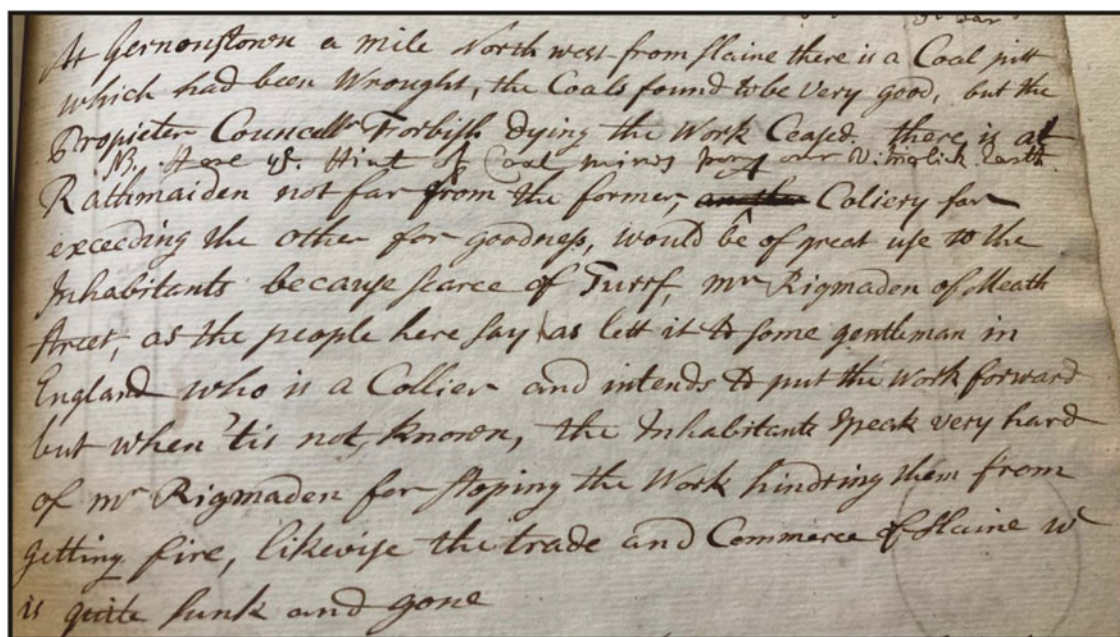 At Gernonstown a mile North west from Slaine there is a Coal pitt
which had been Wrought, the Coals found to be very good, but the
Propieter Councellr Forbish dying the Work Ceased. there is at
NB. Here ye. Hint of Coal mines our Vitriolick Earth
Rathmaiden not far from the former, Coliery far
exceeding the other for goodness, would be of great use to the
Inhabitants because scarce of Turff, mr Rigmaden of Meath
street, as the people here say has lett it to some gentleman in
England who is a Collier and intends to put the Work forward
but when 'tis not known, the Inhabitants speak very hard
of mr Rigmaden for stoping the Work hindring them from
getting fire, likewise the trade and Commerce of Slaine wch
is quite sunk and gone